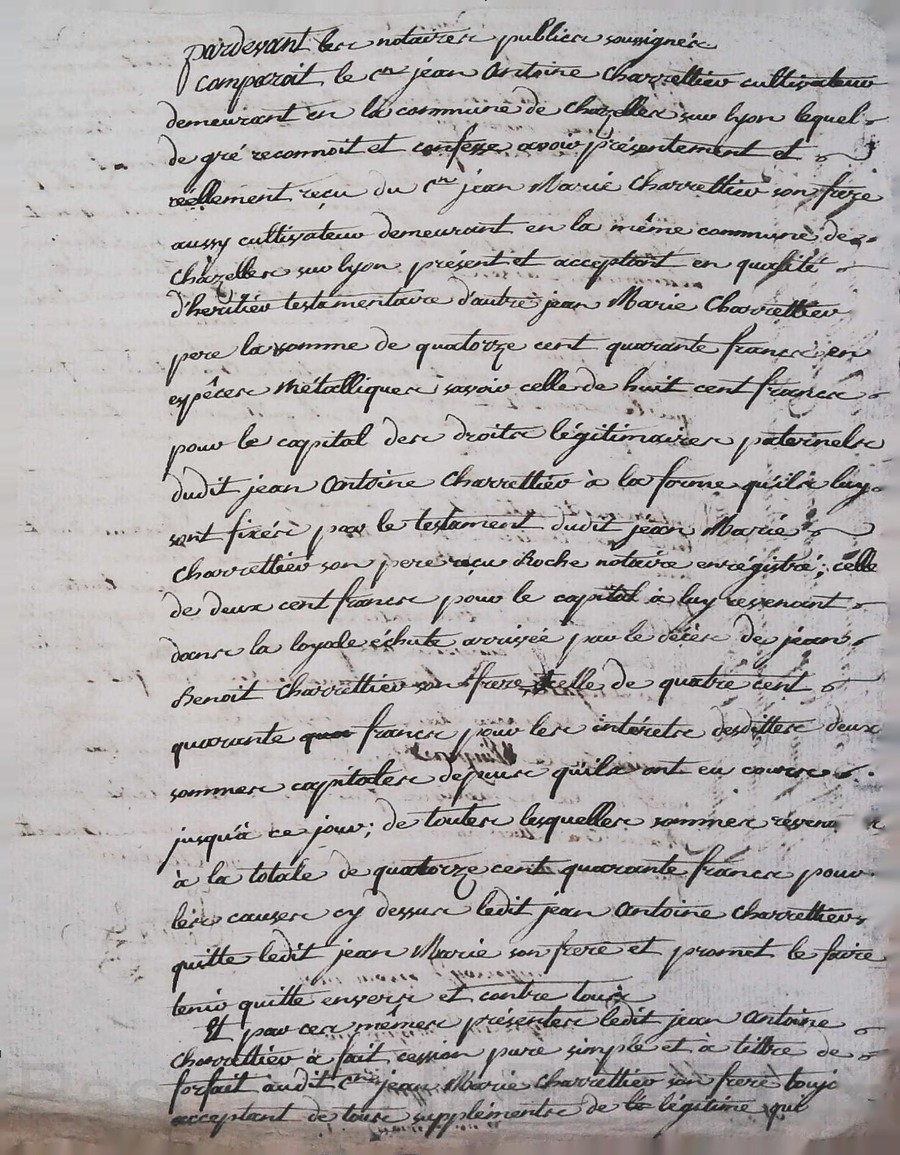 pardevant les notaires publics soussignés
comparait le cen jean Antoine Charrettier cultivateur
demeurant en la commune de chazelles sur lyon lequel
de gré reconnoit et confesse avoir présentement et
réellement reçu du cen jean Marie Charrettier son frere
aussy cultivateur demeurant en la même commune de
Chazelles sur lyon présent et acceptant en qualité
d'heritier testamentaire d'autre jean Marie Charrettier
pere la somme de quatorze cent quarante francs en
espêces métalliques savoir celle de huit cent francs
pour le capital des droits légitimaires paternels
dudit jean Antoine Charrettier à la forme qu'ils luy
sont fixés par le testament dudit jean Marie
Charrettier son pere reçu Roche notaire enrégistré; celle
de deux cent francs pour le capital à luy revenant
dans la loyale échute arrivée par le décès de jean
Benoit Charrettier son frere celle de quatre cent
quarante francs pour les intérets desdittes deux
sommes capitales depuis qu'ils ont eu cours
jusqu'à ce jour; de toutes lesquelles sommes
à la totale de quatorze cent quarante francs pour
les causes cy dessus ledit jean Antoine charrettier
quitte ledit jean Marie son frere et promet le faire
tenir quitte envers et contre tous
Et par ces mêmes présentes ledit jean Antoine
Charrettier à fait cession pure simple et à tittre de
forfait audit cen jean Marie Charrettier son frere toujs
acceptant de tous supplements de légitime que